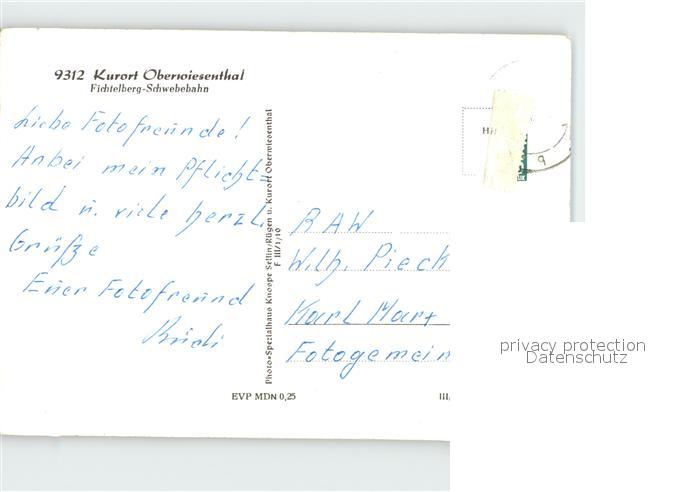 9312 Kurort Oberwiesenthal
Fichtelberg-Schwebebahn
Liebe Fotofreunde!
Anbei mein Pflicht=
bild u. viele herzl.
Grüße
Euer Fotofreund
Rudi
Photo-Spezialhaus Knospe Sellin/Rügen u. Kurort Oberwiesenthal
F III/1/10
RAW
Wilh. Pieck
Karl Marx
Fotogemein
EVP MDN 0,25
III/
9
privacy protection
Datenschutz